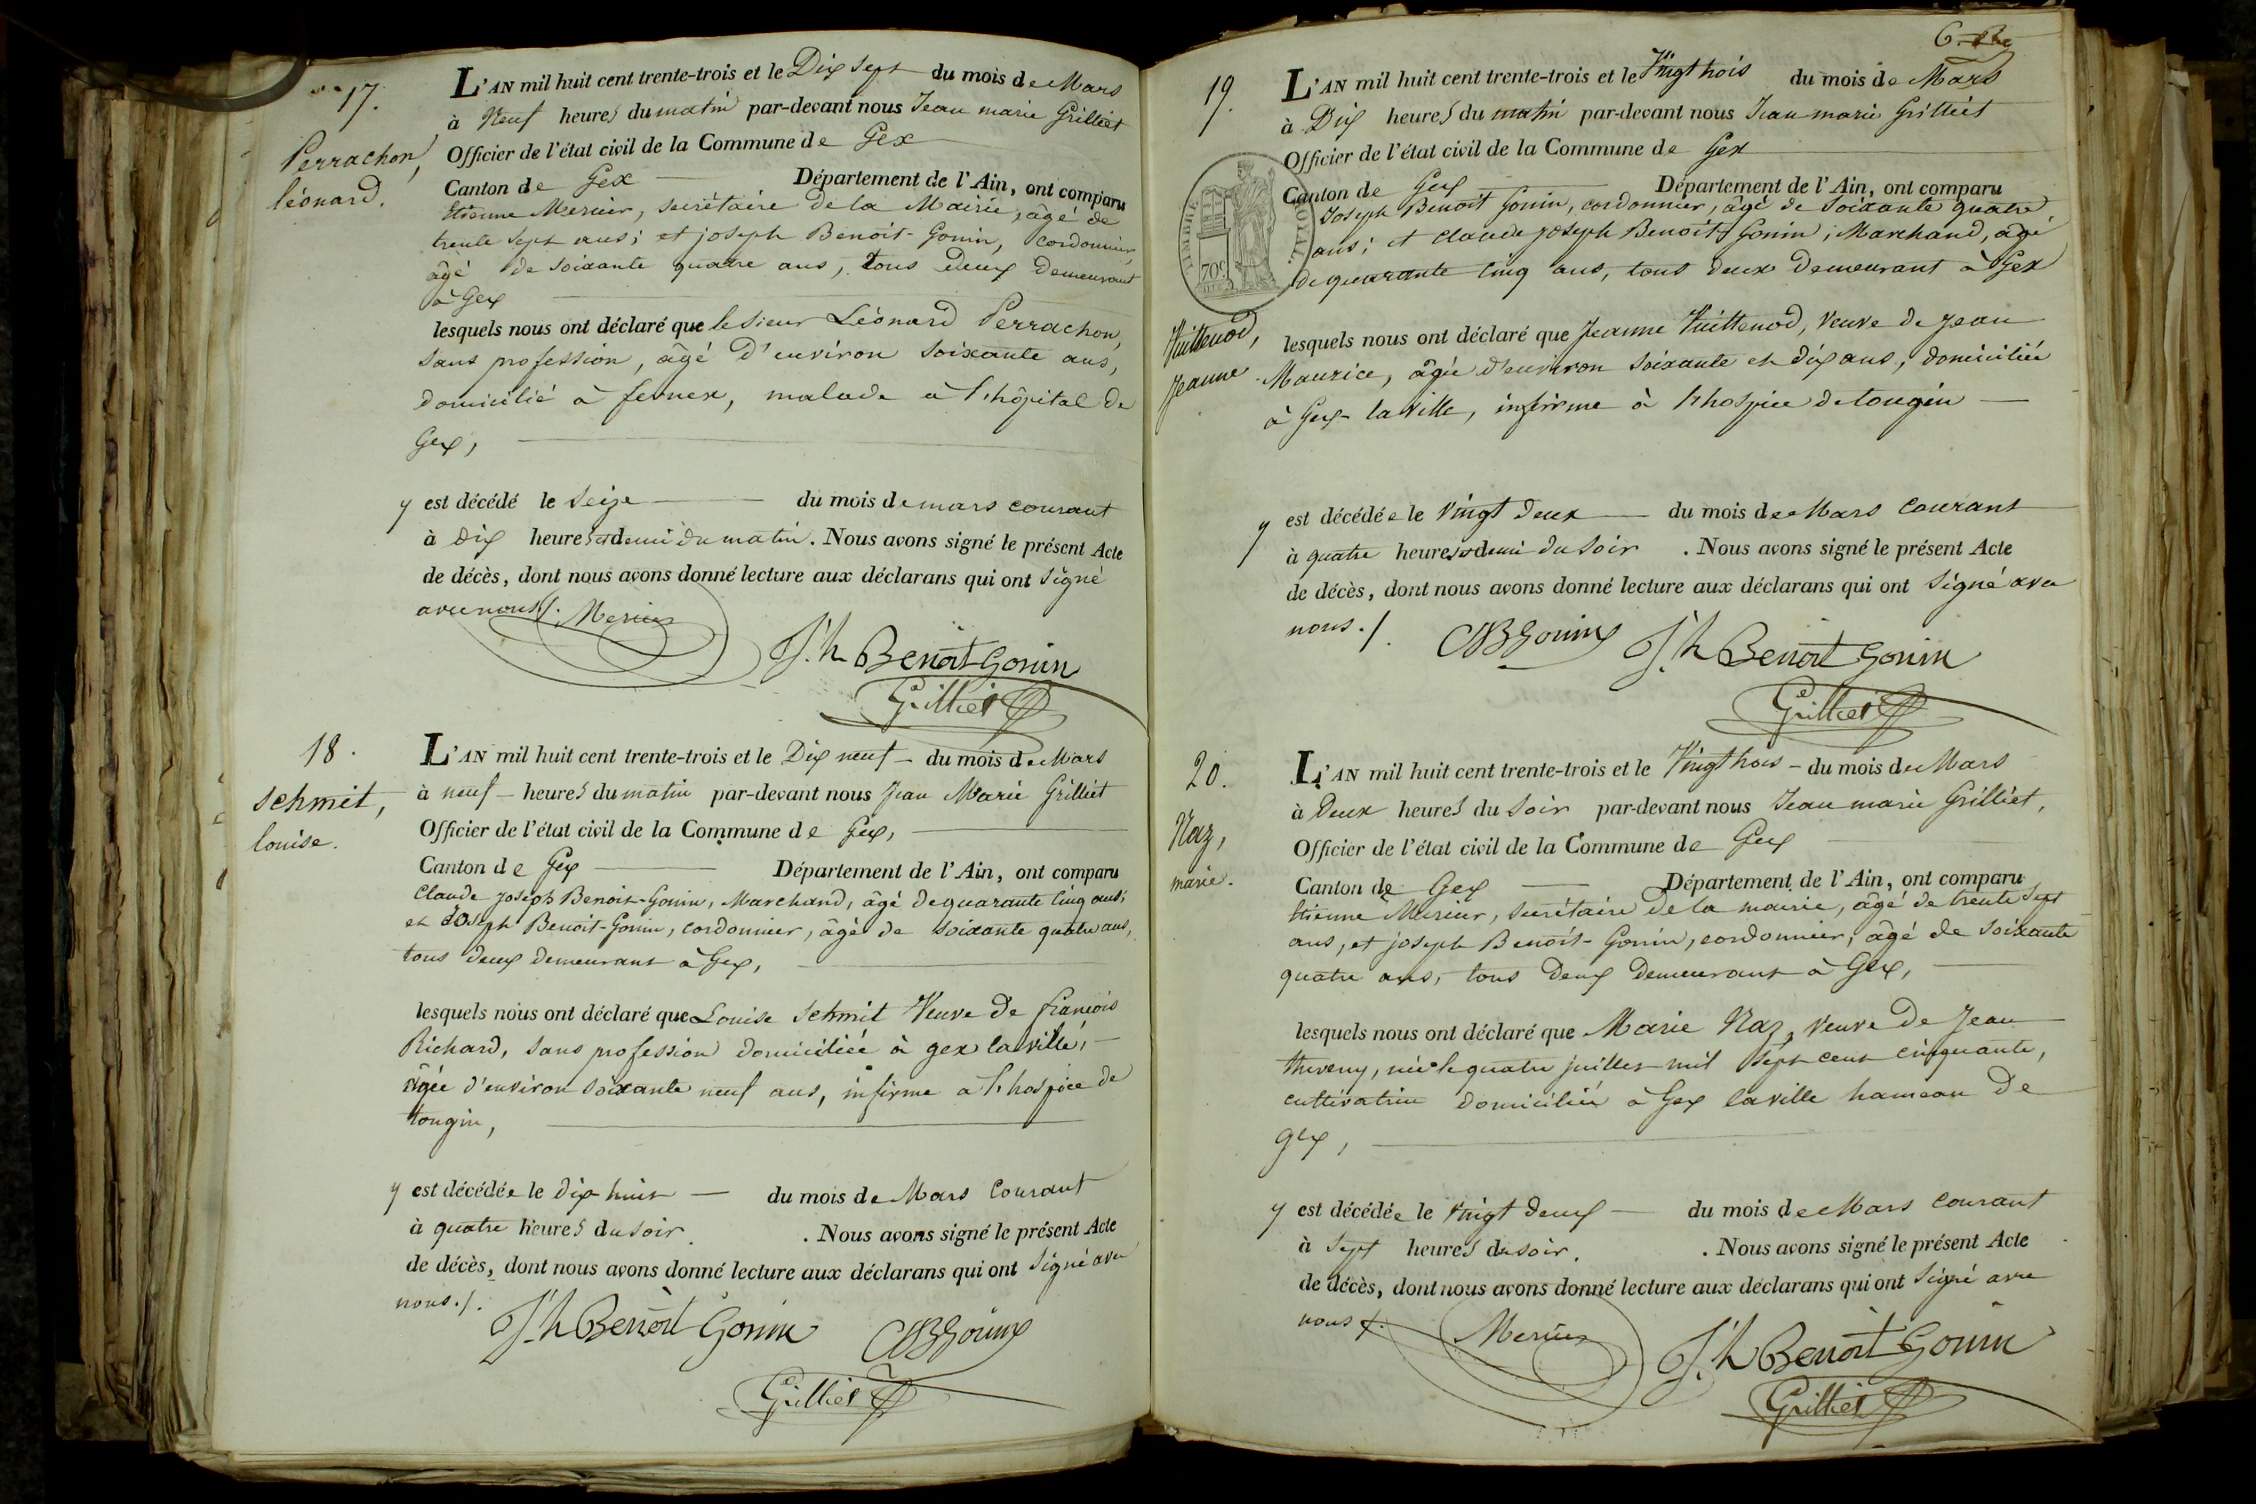 17.
Perrachon,
léonard.
L'AN mil huit cent trente-trois et le Dix Sept du mois de Mars
à Neuf heures du matin par-devant nous Jean marie Grilliet
Officier de l'état civil de la Commune de Gex
Canton de Gex Département de l'Ain, ont comparu
Etienne Mercier, secrétaire de la Mairie, âgé de
trente sept ans; et joseph Benoit-Gonin, cordonnier,
âgé de soixante quatre ans, tous deux demeurant
à Gex
lesquels nous ont déclaré que le sieur Léonard Perrachon,
sans profession, âgé d'environ soixante ans,
domicilié à fernex, malade à l'hôpital de
Gex,
y est décédé le seize du mois de mars courant
à dix heures et demi du matin. Nous avons signé le présent Acte
de décès, dont nous avons donné lecture aux déclarans qui ont signé
avec nous ./. Mercier
J.h Benoit Gonin
Grilliet
18.
Schmit,
louise.
L'AN mil huit cent trente-trois et le Dix neuf du mois de Mars
à neuf heures du matin par-devant nous Jean Marie Grilliet
Officier de l'état civil de la Commune de Gex,
Canton de Gex Département de l'Ain, ont comparu
Claude joseph Benoit-Gonin, Marchand, âgé de quarante cinq ans;
et Joseph Benoit-Gonin, cordonnier, âgé de soixante quatre ans,
tous deux demeurant à Gex,
lesquels nous ont déclaré que Louise Schmit Veuve de françois
Richard, sans profession domiciliée à gex la ville,
âgée d'environ soixante neuf ans, infirme a l'hospice de
tougin,
y est décédée le dix huit du mois de Mars Courant
à quatre heures du soir. . Nous avons signé le présent Acte
de décès, dont nous avons donné lecture aux déclarans qui ont signé avec
nous ./.
J.h Benoit Gonin CJBGonin
Grilliet
6.
19.
TIMBRE ROYAL
70c
Vuittenod,
Jeanne
L'AN mil huit cent trente-trois et le Vingt trois du mois de Mars
à Dix heures du matin par-devant nous Jean marie Grilliet
Officier de l'état civil de la Commune de Gex
Canton de Gex Département de l'Ain, ont comparu
Joseph Benoit Gonin, cordonnier, âgé de soixante quatre
ans; et claude joseph Benoit-Gonin, Marchand, âgé
de quarante cinq ans, tous deux demeurant à Gex
lesquels nous ont déclaré que Jeanne Vuittenod, Veuve de Jean
Maurice, âgée d'environ soixante et dix ans, domiciliée
à Gex-la ville, infirme à l'hospice de tougin
y est décédée le Vingt deux du mois de Mars Courant
à quatre heures et demi du soir . Nous avons signé le présent Acte
de décès, dont nous avons donné lecture aux déclarans qui ont signé avec
nous ./. CJBGonin J.h Benoit Gonin
Grilliet
20.
Naz,
marie.
L'AN mil huit cent trente-trois et le Vingt trois du mois de Mars
à Deux heures du soir par-devant nous Jean marie Grilliet,
Officier de l'état civil de la Commune de Gex
Canton de Gex Département de l'Ain, ont comparu
Etienne Mercier, secrétaire de la mairie, âgé de trente sept
ans, et joseph Benoit-Gonin, cordonnier, âgé de soixante
quatre ans, tous deux demeurant à Gex,
lesquels nous ont déclaré que Marie Naz, Veuve de Jean
thiveny, née le quatre juillet mil sept cent cinquante,
cultivatrice domiciliée à Gex la ville hameau de
gex,
y est décédée le Vingt deux du mois de Mars Courant
à sept heures du soir. . Nous avons signé le présent Acte
de décès, dont nous avons donné lecture aux déclarans qui ont signé avec
nous ./. Mercier J.h Benoit Gonin
Grilliet